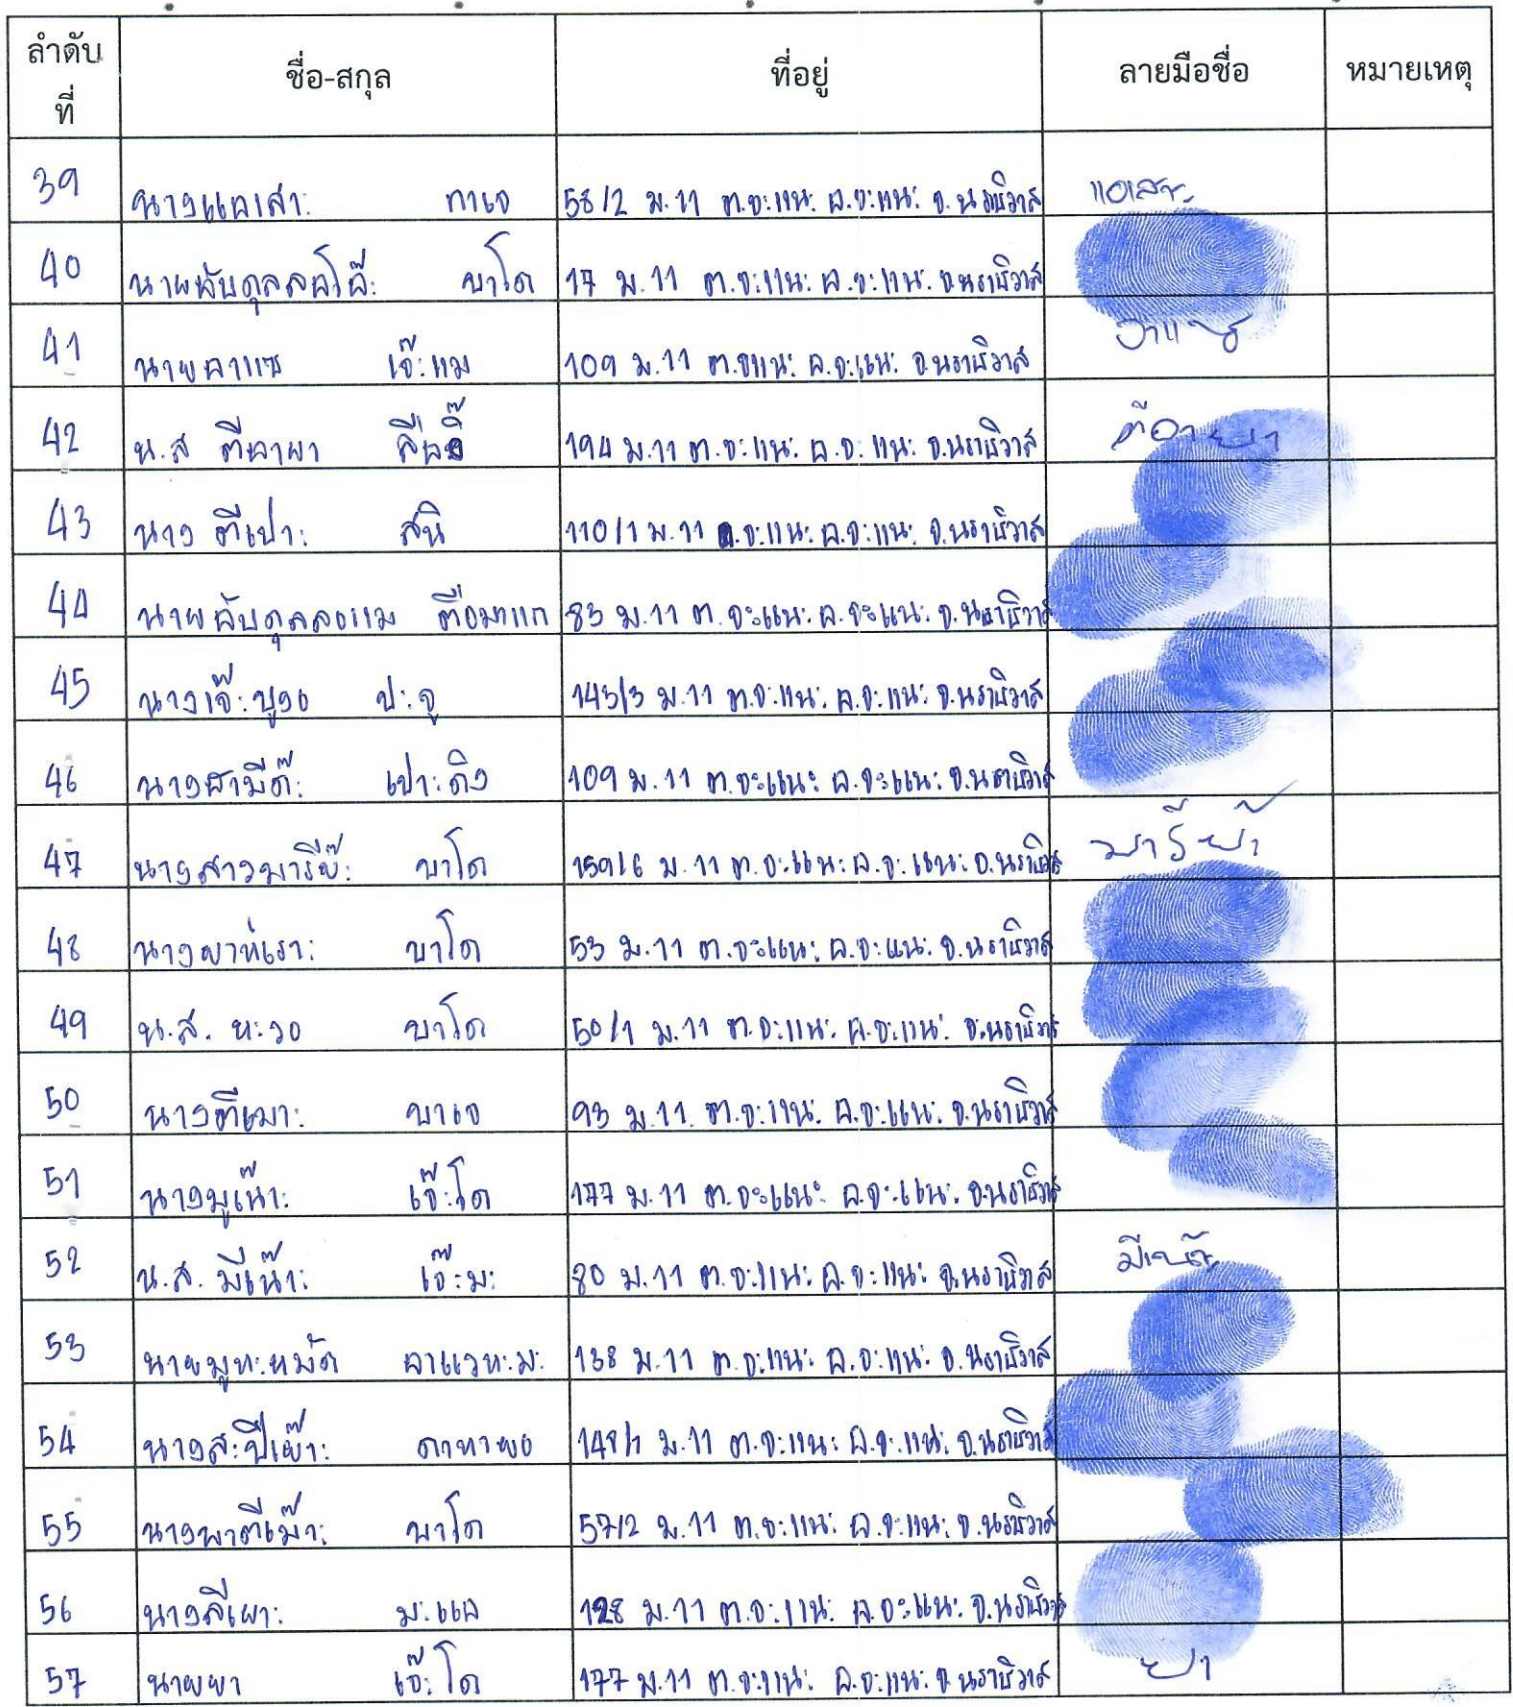 ลำดับที่ ชื่อ-สกุล ที่อยู่ ลายมือชื่อ หมายเหตุ
39 นางแอเสาะ กาเจ 58/2 ม.11 ต.จะแนะ อ.จะแนะ จ.นราธิวาส แอเสาะ
40 นายอับดุลลอโอ๊ะ บาโด 17 ม.11 ต.จะแนะ อ.จะแนะ จ.นราธิวาส
41 นายอาแซ เจ๊ะแม 109 ม.11 ต.จแนะ อ.จะแนะ จ.นราธิวาส อาแซ
42 น.ส ตีอายา 194 ม.11 ต.จะแนะ อ.จะแนะ จ.นราธิวาส ตีอายา
43 นาง ตีเปาะ สนิ 110/1 ม.11 ต.จะแนะ อ.จะแนะ จ.นราธิวาส
44 นายอับดุลลอแม ตือมาแก 83 ม.11 ต.จะแนะ อ.จะแนะ จ.นราธิวาส
45 นางเจ๊ะบูงอ ปะจู 143/3 ม.11 ต.จะแนะ อ.จะแนะ จ.นราธิวาส
46 นางสามีด๊ะ เปาะดิง 109 ม.11 ต.จะแนะ อ.จะแนะ จ.นราธิวาส
47 นางสาวมารีย๊ะ บาโด 159/6 ม.11 ต.จะแนะ อ.จะแนะ จ.นราธิวาส
48 นางยาห์เราะ บาโด 53 ม.11 ต.จะแนะ อ.จะแนะ จ.นราธิวาส
49 น.ส. หะวอ บาโด 50/1 ม.11 ต.จะแนะ อ.จะแนะ จ.นราธิวาส
50 นางตีเมาะ บาเจ 93 ม.11 ต.จะแนะ อ.จะแนะ จ.นราธิวาส
51 นางมูเน๊าะ เจ๊ะโด 177 ม.11 ต.จะแนะ อ.จะแนะ จ.นราธิวาส
52 น.ส. มีเน๊าะ เจ๊ะมะ 80 ม.11 ต.จะแนะ อ.จะแนะ จ.นราธิวาส มีเน๊าะ
53 นายมูหะหมัด อาแวหะมะ 138 ม.11 ต.จะแนะ อ.จะแนะ จ.นราธิวาส
54 นางสะปีเย๊าะ ดาหายอ 148/1 ม.11 ต.จะแนะ อ.จะแนะ จ.นราธิวาส
55 นางพาตีเม๊าะ บาโด 57/2 ม.11 ต.จะแนะ อ.จะแนะ จ.นราธิวาส
56 นางลีเยาะ มะแอ 128 ม.11 ต.จะแนะ อ.จะแนะ จ.นราธิวาส
57 นายยา เจ๊ะโด 177 ม.11 ต.จะแนะ อ.จะแนะ จ.นราธิวาส ยา